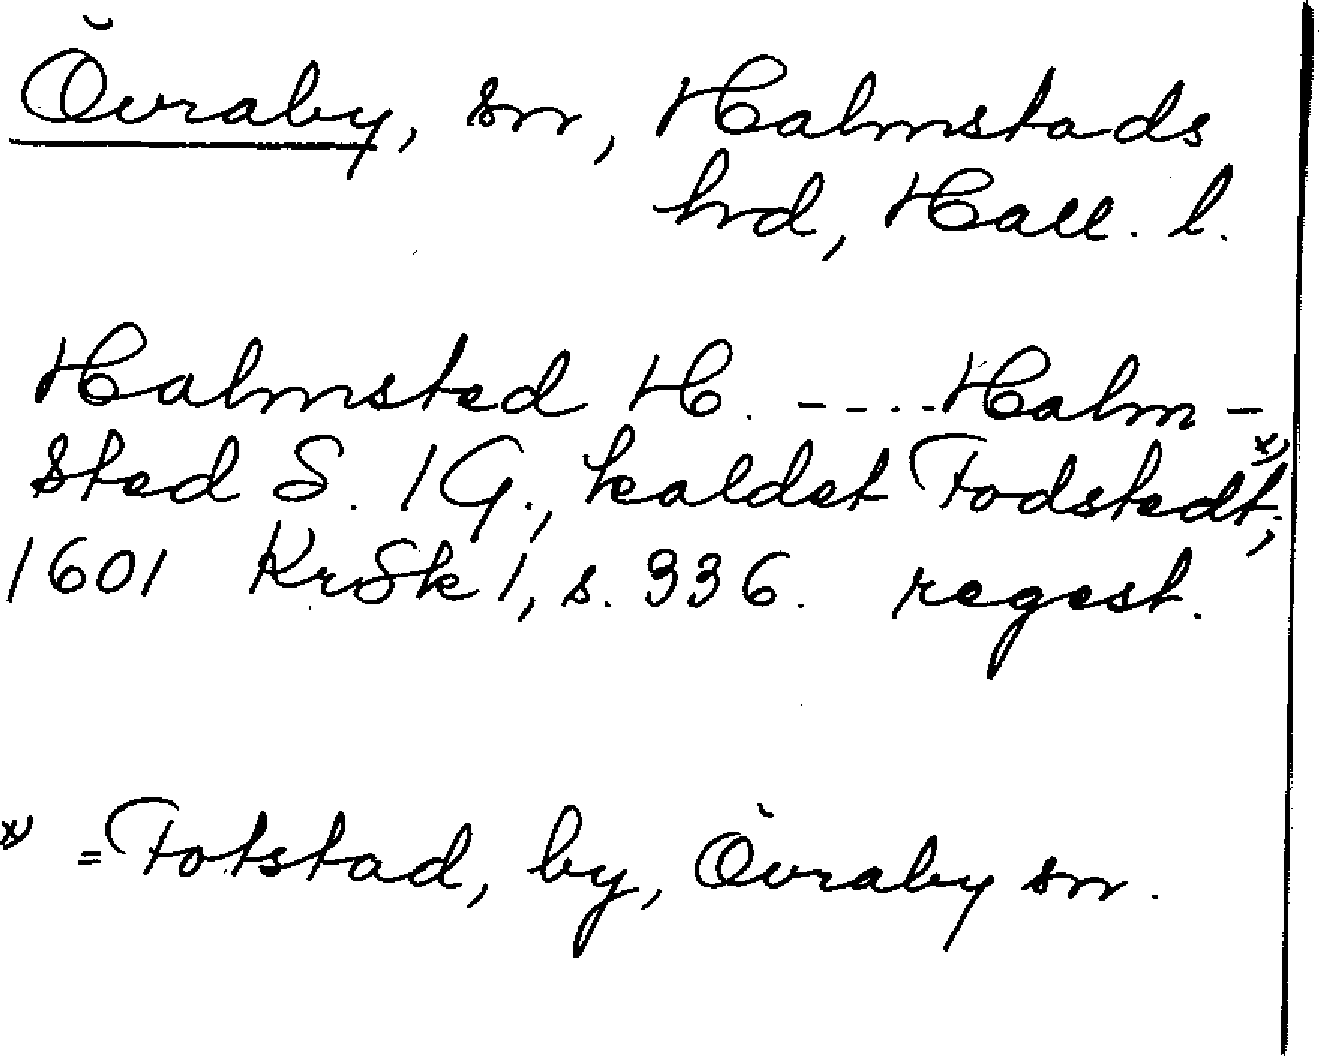 Övraby, sn, Halmstads
hrd, Hall. l.
Halmsted H. ---- Halm-
sted S. 1 G., kaldet Fodstedt, x)
1601 KrSk 1, s. 336. regest.
x) = Fotstad, by, Övraby sn.